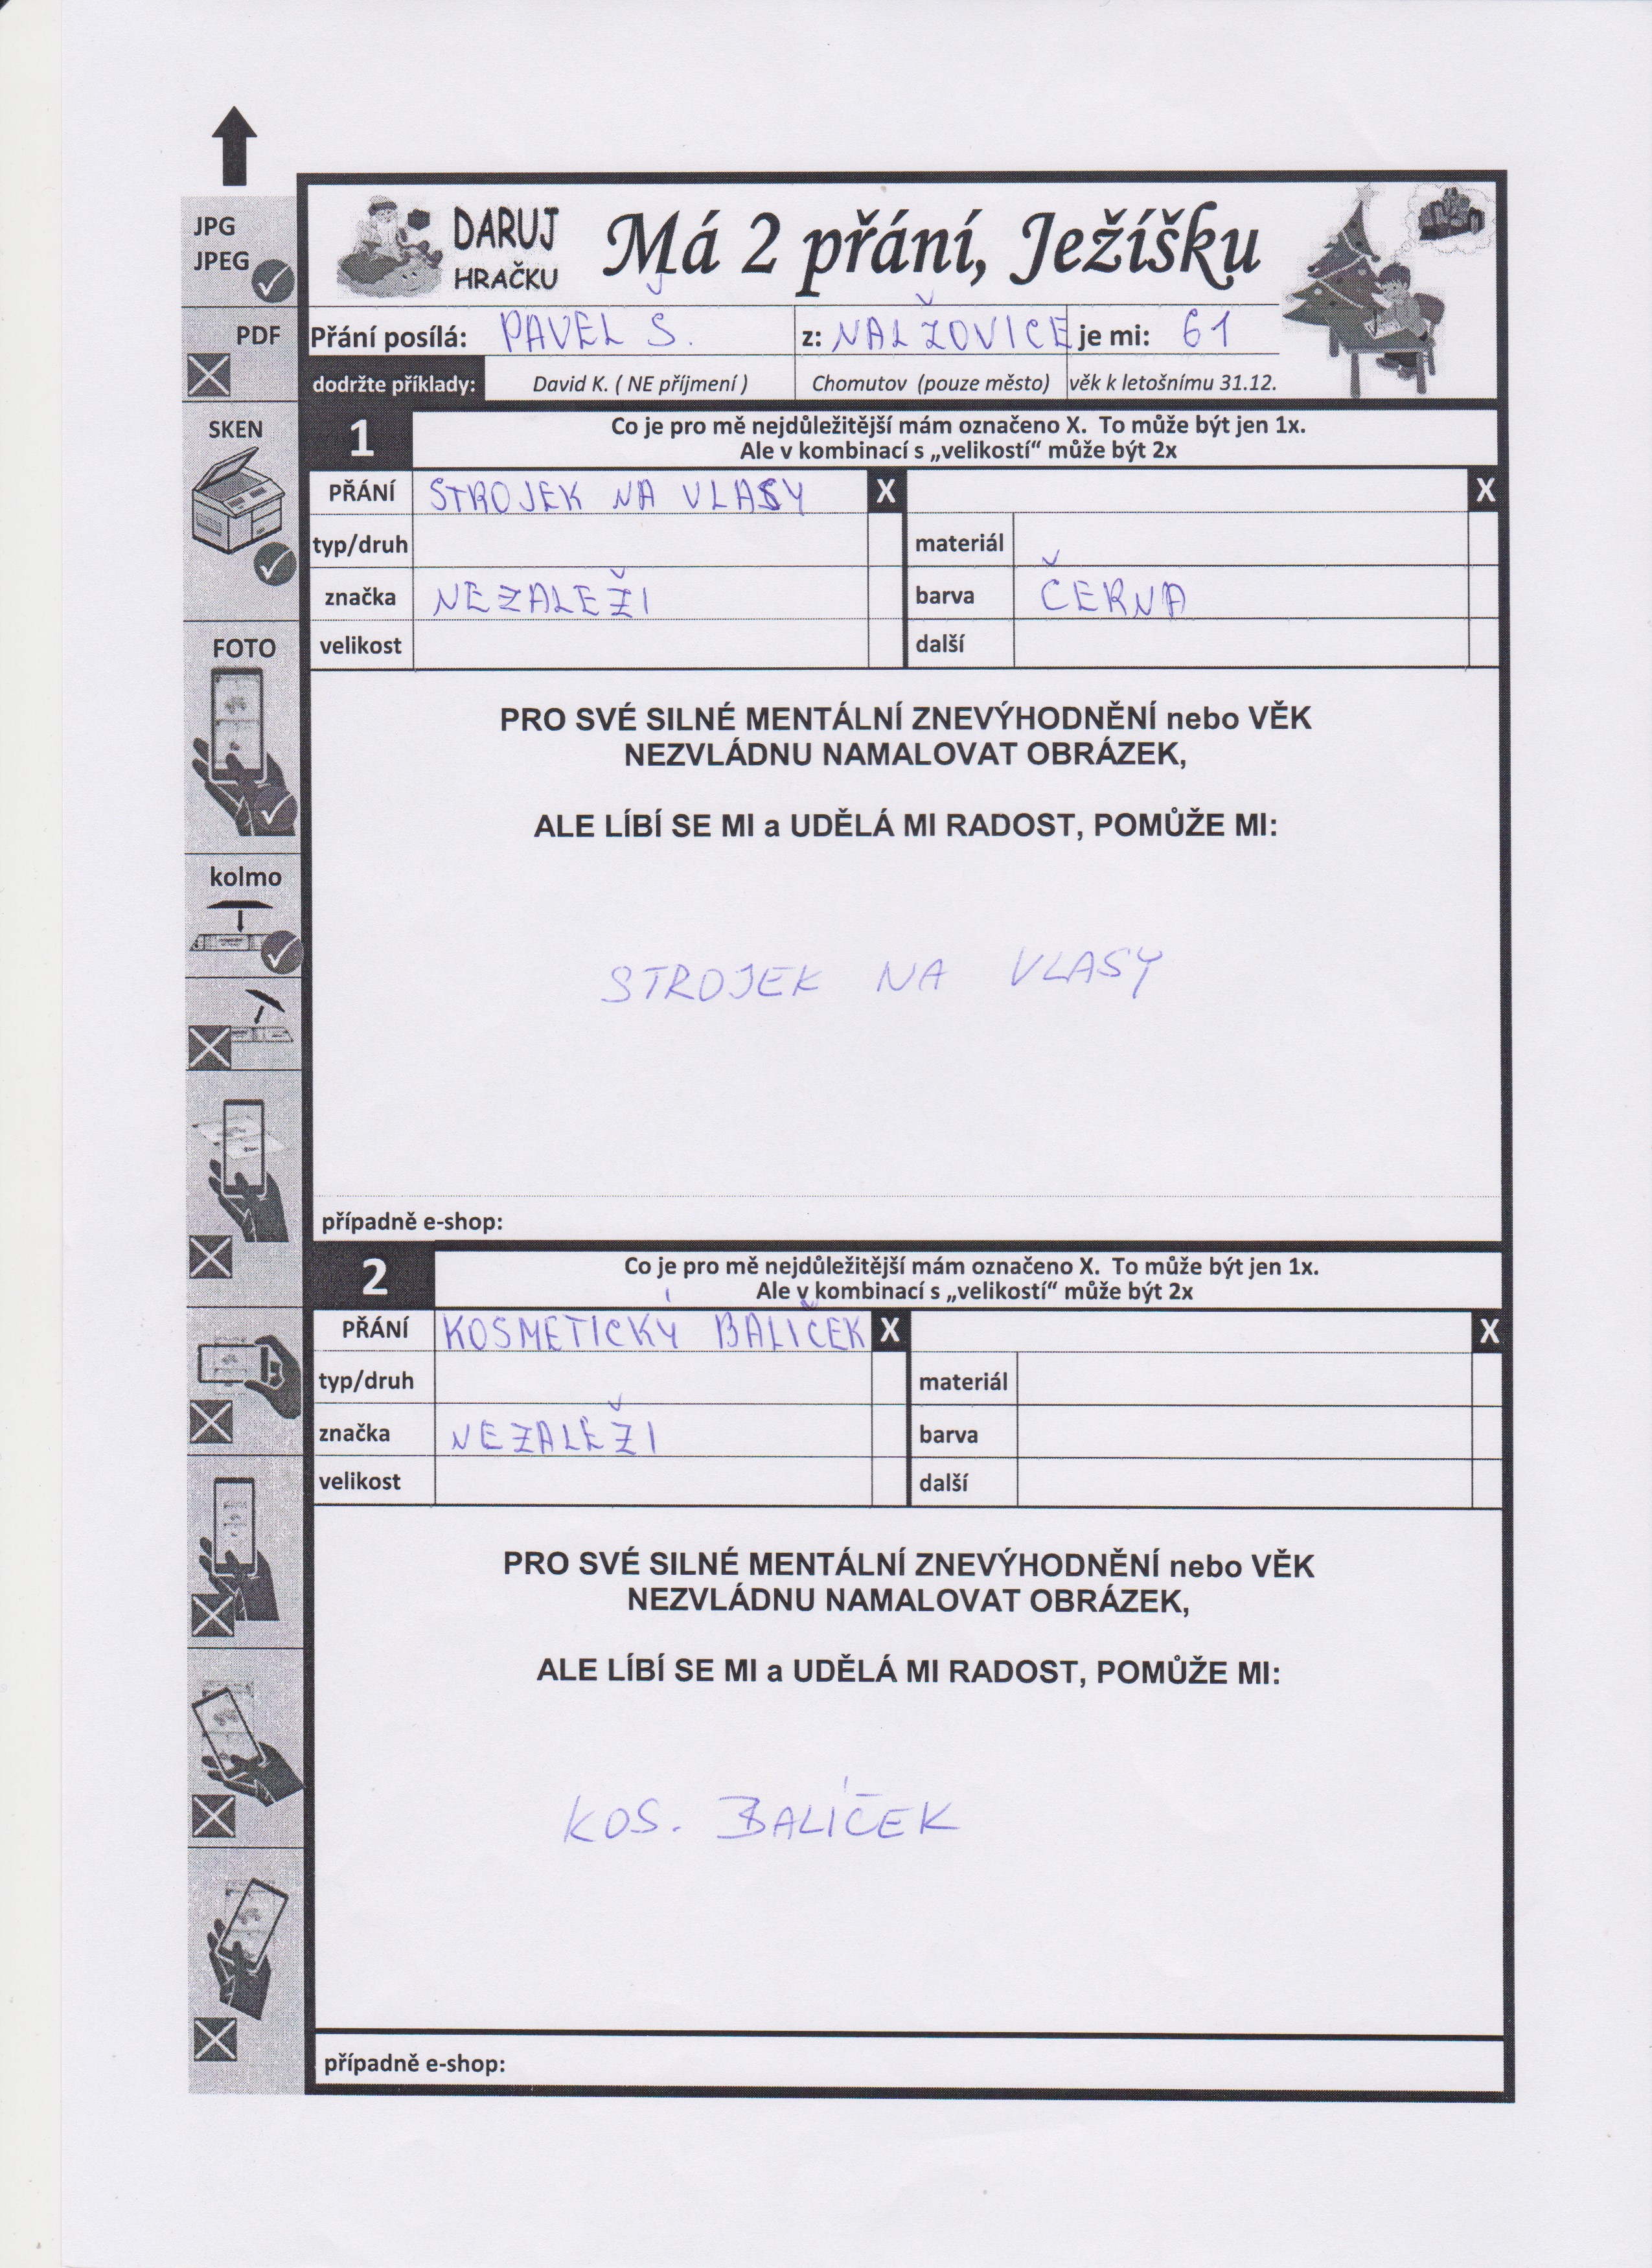 JPG
JPEG
DARUJ
HRAČKU
Má 2 přání, Ježíšku
PDF
Přání posílá: PAVEL Š. z: NALŽOVICE je mi: 61
dodržte příklady: David K. ( NE příjmení ) Chomutov (pouze město) věk k letošnímu 31.12.
SKEN
1
Co je pro mě nejdůležitější mám označeno X. To může být jen 1x.
Ale v kombinací s „velikostí“ může být 2x
PŘÁNÍ STROJEK NA VLASY X X
typ/druh materiál
značka NEZALEŽI barva ČERNA
velikost další
FOTO
PRO SVÉ SILNÉ MENTÁLNÍ ZNEVÝHODNĚNÍ nebo VĚK
NEZVLÁDNU NAMALOVAT OBRÁZEK,
ALE LÍBÍ SE MI a UDĚLÁ MI RADOST, POMŮŽE MI:
kolmo
STROJEK NA VLASY
případně e-shop:
2
Co je pro mě nejdůležitější mám označeno X. To může být jen 1x.
Ale v kombinací s „velikostí“ může být 2x
PŘÁNÍ KOSMETICKÝ BALIČEK X X
typ/druh materiál
značka NEZALEŽI barva
velikost další
PRO SVÉ SILNÉ MENTÁLNÍ ZNEVÝHODNĚNÍ nebo VĚK
NEZVLÁDNU NAMALOVAT OBRÁZEK,
ALE LÍBÍ SE MI a UDĚLÁ MI RADOST, POMŮŽE MI:
KOS. BALÍČEK
případně e-shop: